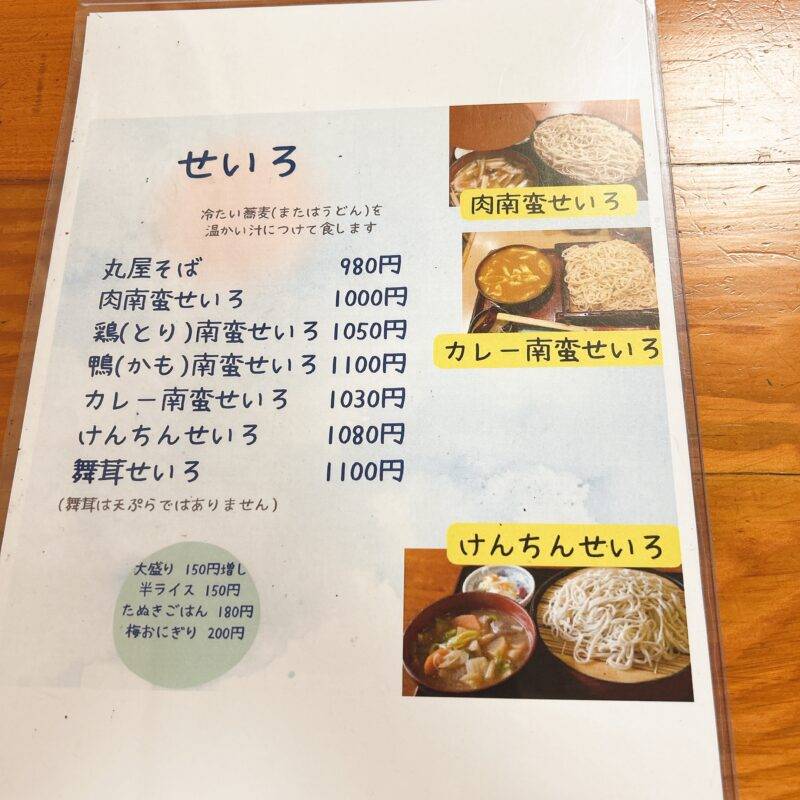 せいろ
冷たい蕎麦(またはうどん)を
温かい汁につけて食します
丸屋そば 980円
肉南蛮せいろ 1000円
鶏(とり)南蛮せいろ 1050円
鴨(かも)南蛮せいろ 1100円
カレー南蛮せいろ 1030円
けんちんせいろ 1080円
舞茸せいろ 1100円
(舞茸は天ぷらではありません)
大盛り 150円増し
半ライス 150円
たぬきごはん 180円
梅おにぎり 200円
肉南蛮せいろ
カレー南蛮せいろ
けんちんせいろ